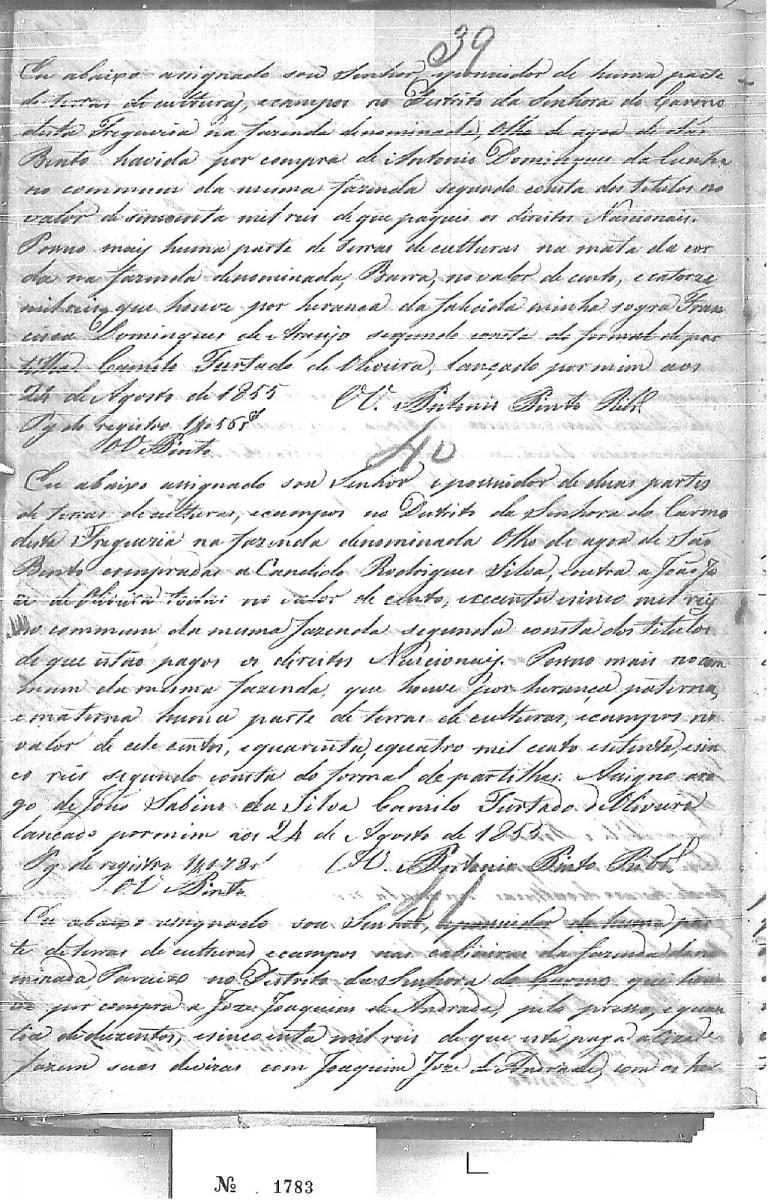 39
Eu abaixo assignado sou Senhor, e possuidor de huma parte
de terras de cultura, e campos no Destrito da Senhora do Carmo
desta Freguezia na fazenda denominada, Olho de agoa de São
Bento havida por compra de Antonio Domingues da Cunha
no commum da mesma fazenda segundo consta dos titulos no
valor de sincoenta mil reis de que paguei os direitos Nascionais.
Posuo mais huma parte de terras de culturas na mata da cor
da na fazenda denominada, Barra, no valor de cento, e catorze
mil reis, que houve por herança da falecida minha sogra Fran
cisca Domingues de Araujo segundo consta do formal de par
tilha Camilo Furtado de Oliveira, lançado por mim aos
24 de Agosto de 1855 O V. Antonio Pinto Ribr.
Pg de registro 1$565
O V. Pinto
40
Eu abaixo assignado sou Senhor e possuidor de duas partes
de terras de culturas, e campos no Distrito da Senhora do Carmo
desta Freguezia na fazenda denominada Olho de agoa de São
Bento compradas a Candido Rodrigues Silva, outra a João Jo
ze de Oliveira todas no valor de cento, e secenta e sinco mil reis
no commum da mesma fazenda segundo consta dos titulos
de que estão pagos os direitos Nascionais. Posuo mais no com
mum da mesma fazenda, que houve por herança paterna,
e materna huma parte de terras de culturas, e campos no
valor de cete centos, e quarenta, e quatro mil cento e setenta, e sin
co reis segundo consta do formal de partilhas. Asigno a ro
go de João Sabino da Silva Camilo Furtado de Oliveira
lançado por mim aos 24 de Agosto de 1855
Pg de registro O V. Antonio Pinto Ribr.
O V. Pinto
41
Eu abaixo assignado sou Senhor, e possuidor de huma par
te de terras de culturas e campos nas cabiceiras da fazenda deno
minada, Paraizo no Destrito da Senhora do Carmo que hou
ve por compra a Joze Joaquim de Andrade, pelo presso, e quan
tia de duzentos, e sincoenta mil reis de que esta paga a
fazem suas devizas com Joaquim Joze de Andrade, com os her
No. 1783